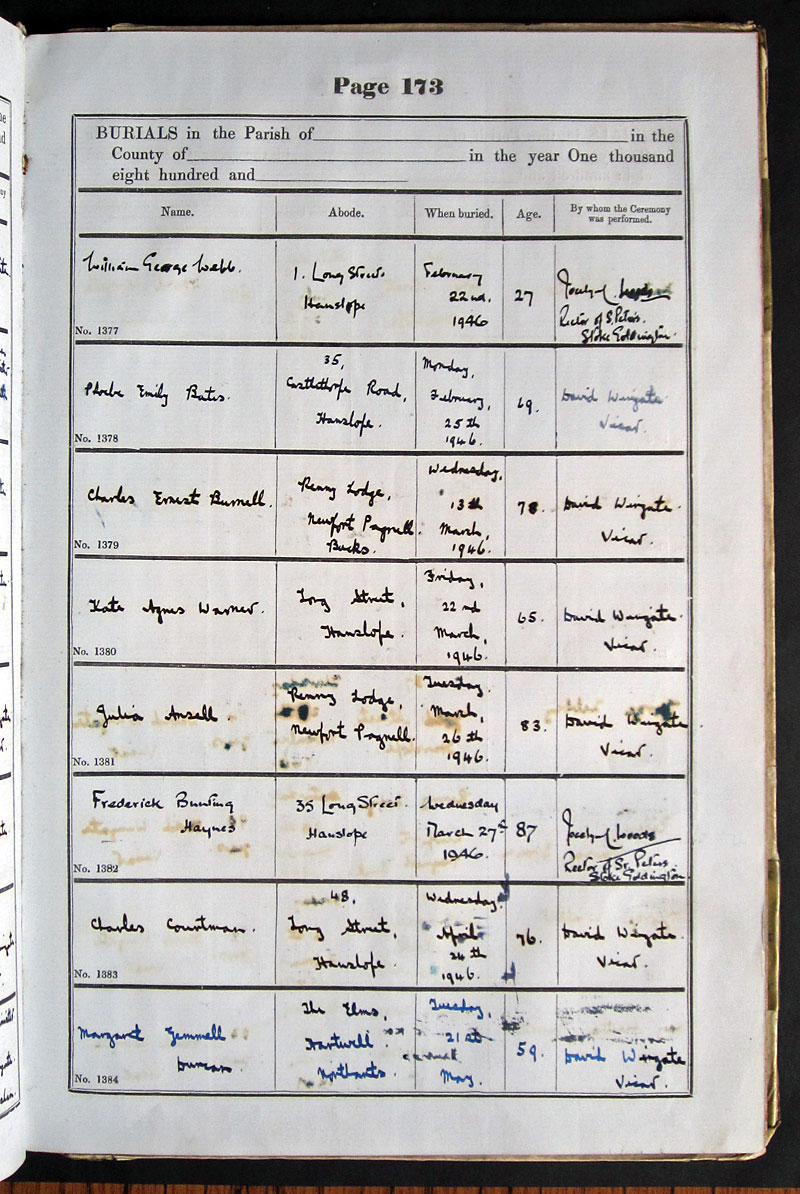 Page 173
BURIALS in the Parish of in the
County of in the year One thousand
eight hundred and
Name. Abode. When buried. Age. By whom the Ceremony was performed.
William George Webb.
No. 1377
1. Long Street
Hanslope
February
22nd.
1946
27
Rector of S. Peters.
Stoke Goldington.
Phoebe Emily Bates.
No. 1378
35,
Castlethorpe Road,
Hanslope.
Monday,
February,
25th
1946.
69.
David Wingate
Vicar.
Charles Ernest Burnell.
No. 1379
Renny Lodge,
Newport Pagnell.
Bucks.
Wednesday,
13th
March,
1946.
78.
David Wingate
Vicar.
Kate Agnes Warner.
No. 1380
Long Street,
Hanslope.
Friday,
22nd
March,
1946.
65.
David Wingate
Vicar.
Julia Ansell.
No. 1381
Renny Lodge,
Newport Pagnell.
Tuesday.
March,
26th
1946.
83.
David Wingate
Vicar.
Frederick Bunting
Haynes
No. 1382
35 Long Street.
Hanslope
Wednesday
March 27th
1946.
87
Rector of S. Peters.
Stoke Goldington.
Charles Courtman.
No. 1383
48,
Long Street,
Hanslope.
Wednesday,
April
24th
1946.
76.
David Wingate.
Vicar.
Margaret Gemmell
Duncan.
No. 1384
The Elms,
Hartwell
Northants.
Tuesday,
21st
May.
59.
David Wingate
Vicar.